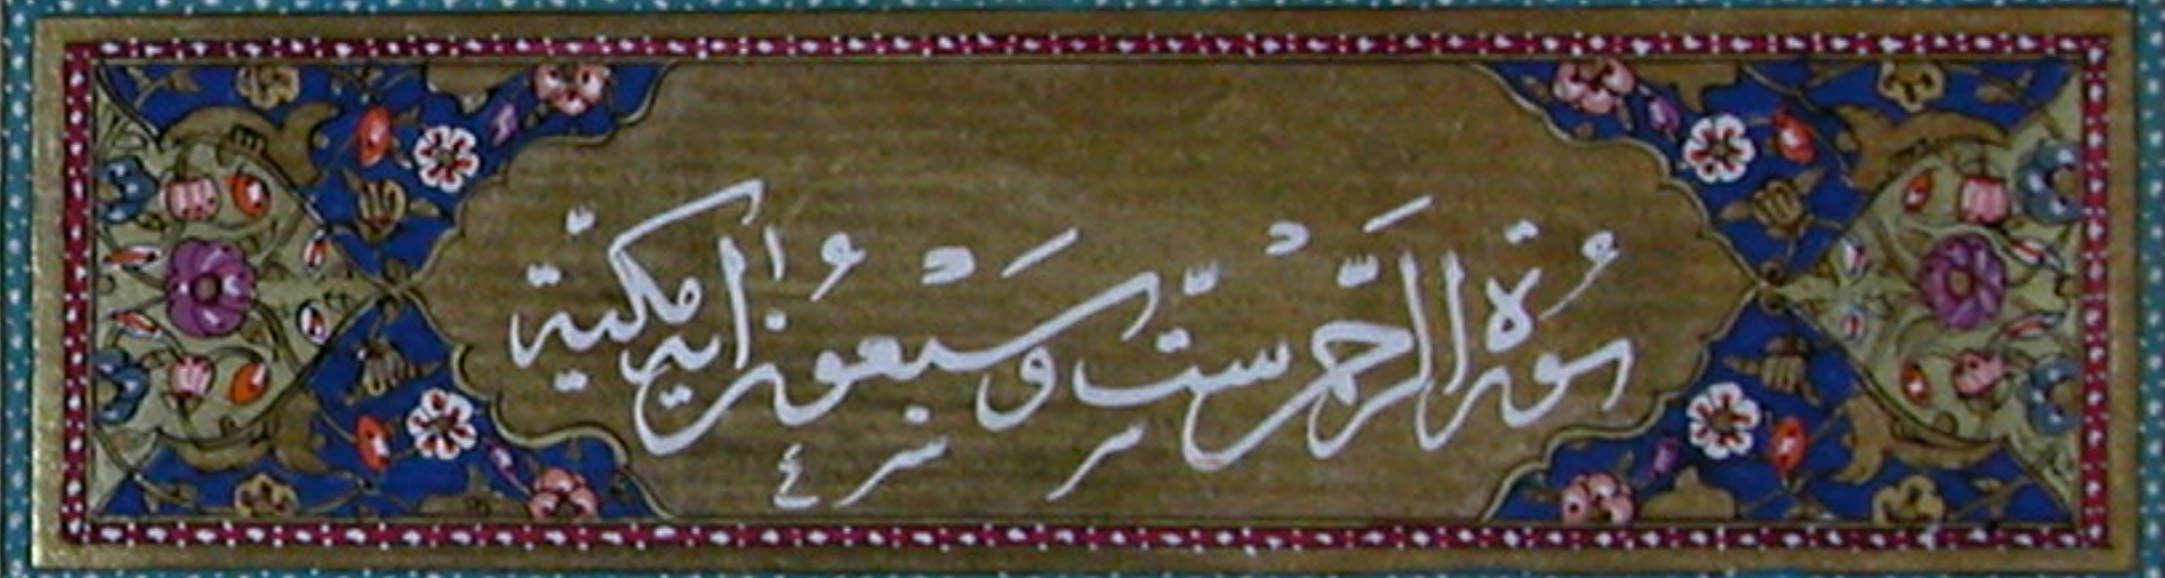 سُورَةُ الرَّحْمٰنِ سِتٌّ وَسَبْعُونَ اٰيَة مَكِّيَّة